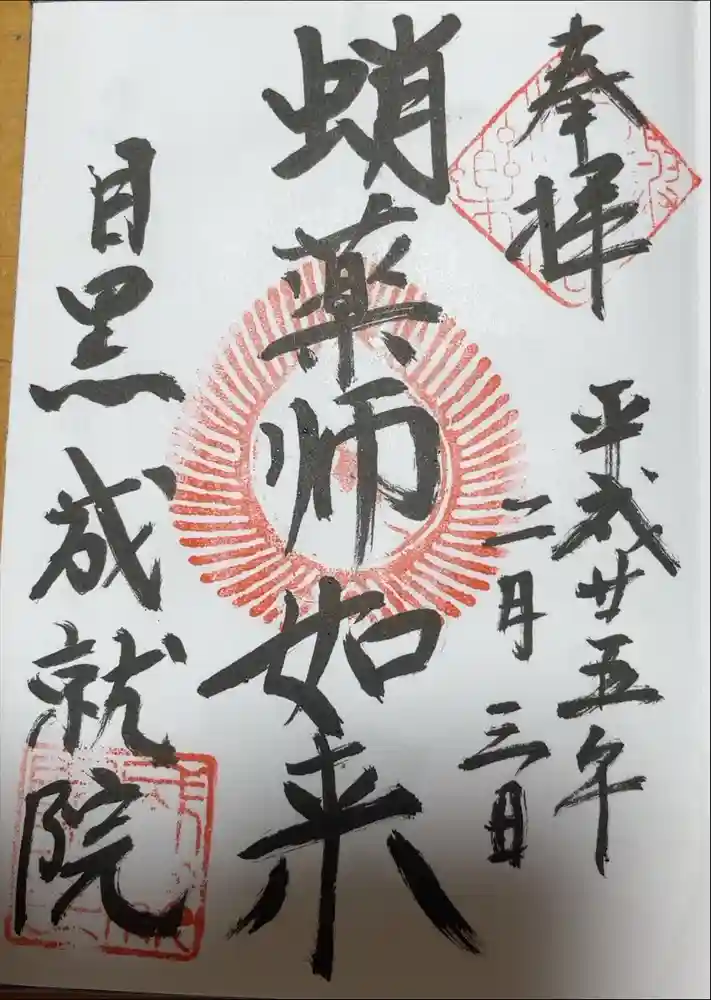 奉拝
平成廿五年
二月三日
蛸薬師如来
目黒成就院